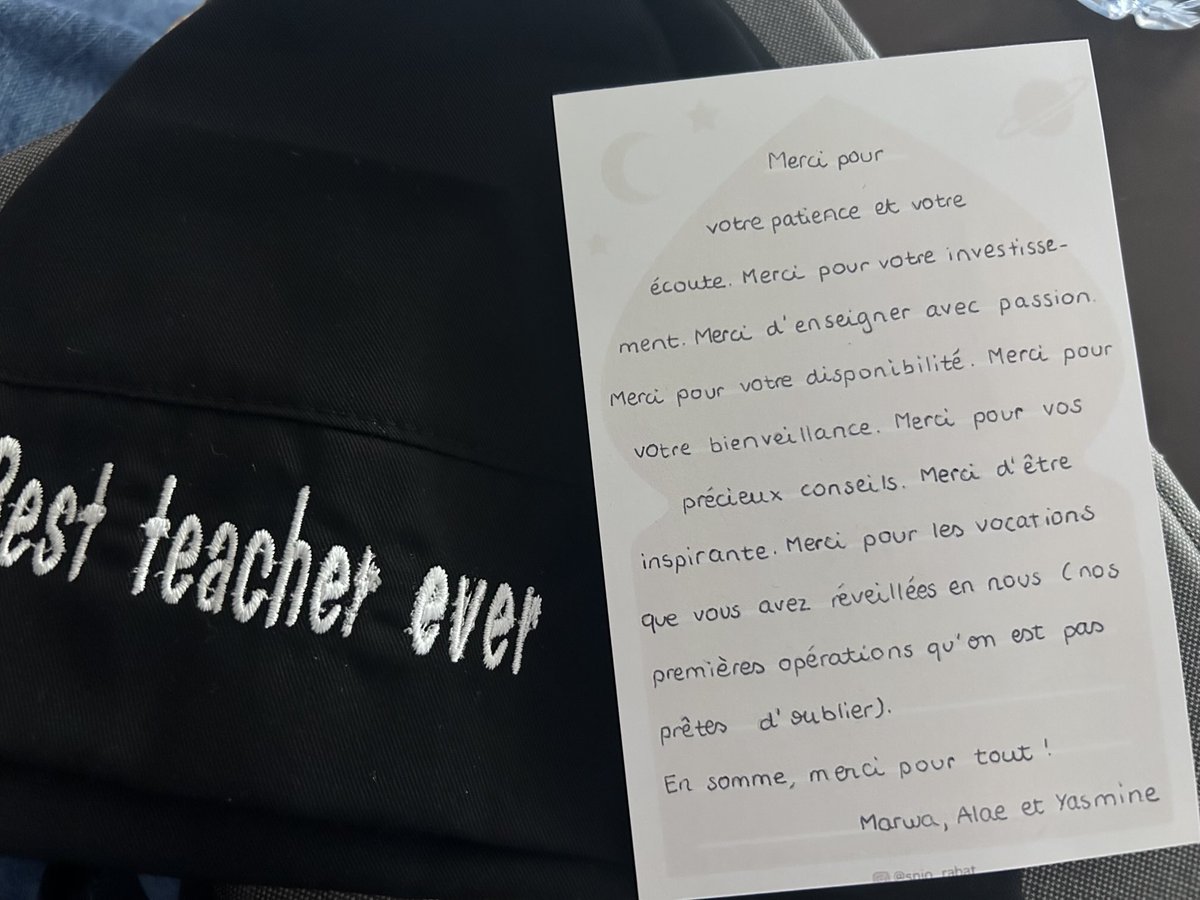 Best teacher ever
Merci pour
votre patience et votre
écoute. Merci pour votre investisse-
ment. Merci d'enseigner avec passion.
Merci pour votre disponibilité. Merci pour
votre bienveillance. Merci pour vos
précieux conseils. Merci d'être
inspirante. Merci pour les vocations
que vous avez réveillées en nous (nos
premières opérations qu'on est pas
prêtes d'oublier).
En somme, merci pour tout !
Marwa, Alae et Yasmine
@snip_rabat